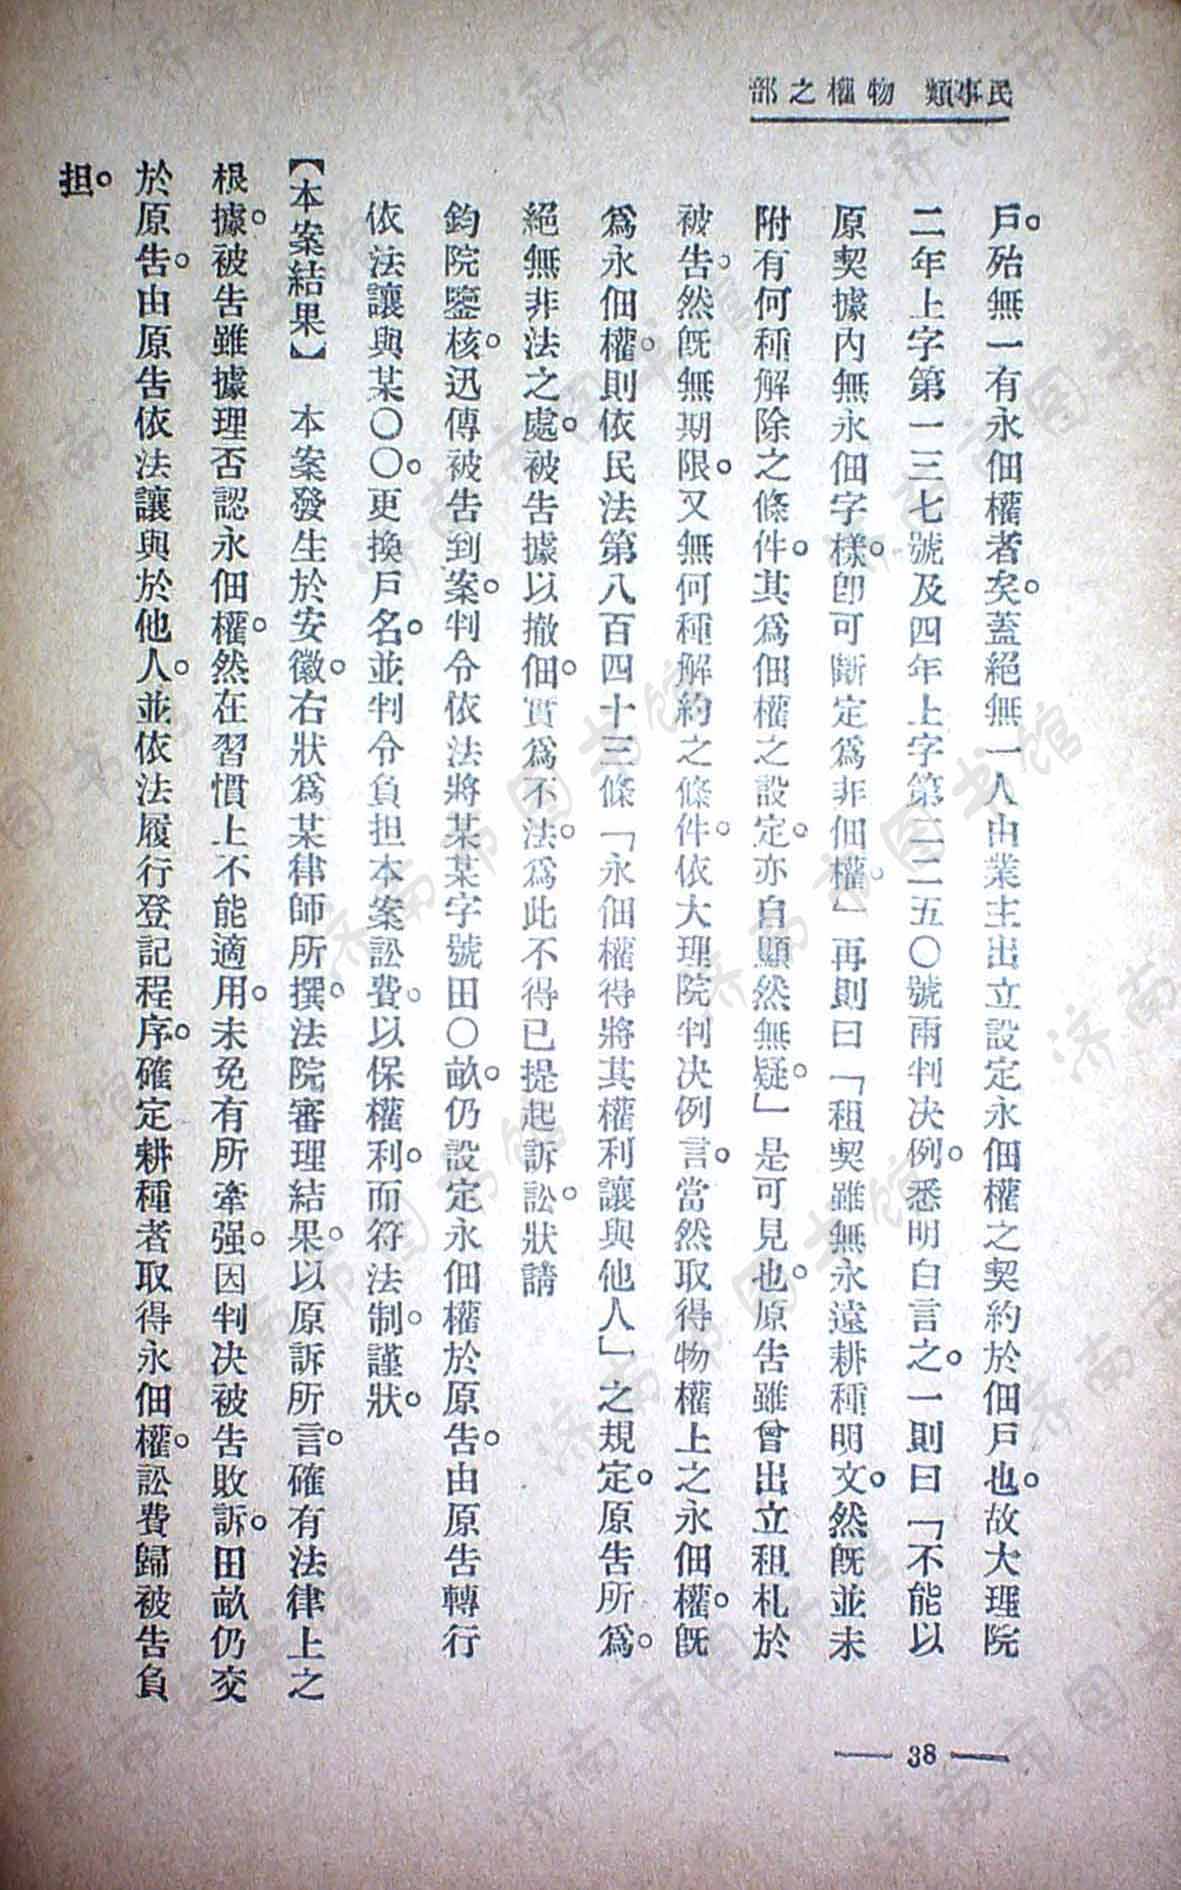 民事類 物權之部
戶。殆無一有永佃權者矣。蓋絕無一人由業主出立設定永佃權之契約於佃戶也。故大理院
二年上字第一三七號及四年上字第二二五〇號兩判决例。悉明白言之。一則曰「不能以
原契據內無永佃字樣。卽可斷定爲非佃權。」再則曰「租契雖無永遠耕種明文。然旣並未
附有何種解除之條件。其爲佃權之設定。亦自顯然無疑。」是可見也。原告雖曾出立租札於
被告。然旣無期限。又無何種解約之條件。依大理院判决例言。當然取得物權上之永佃權。旣
爲永佃權。則依民法第八百四十三條「永佃權得將其權利讓與他人」之規定。原告所爲。
絕無非法之處。被告據以撤佃。實爲不法。爲此不得已提起訴訟。狀請
鈞院鑒核。迅傳被告到案。判令依法將某某字號田〇畝。仍設定永佃權於原告。由原告轉行
依法讓與某〇〇。更換戶名。並判令負担本案訟費。以保權利。而符法制。謹狀。
【本案結果】 本案發生於安徽。右狀爲某律師所撰。法院審理結果。以原訴所言。確有法律上之
根據。被告雖據理否認永佃權。然在習慣上不能適用。未免有所牽强。因判决被告敗訴。田畝仍交
於原告。由原告依法讓與於他人。並依法履行登記程序。確定耕種者取得永佃權。訟費歸被告負
担。
38
济南市图书馆